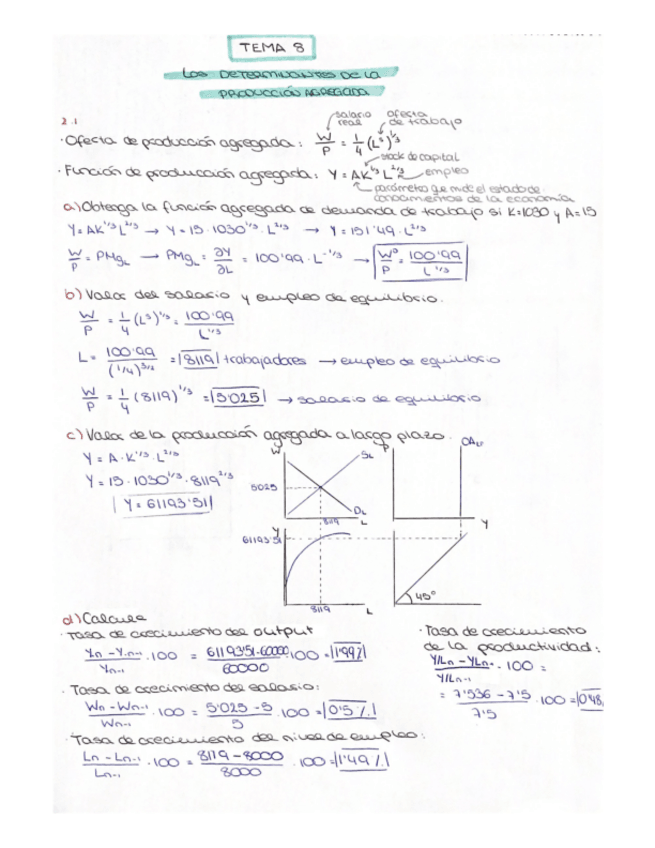 TEMA 8
LOS DETERMINANTES DE LA
PRODUCCIÓN AGREGADA
2.1
salario real
oferta de trabajo
· Oferta de producción agregada: W/P = 1/4 (Lˢ)^1/3
stock de capital
· Función de producción agregada: Y = AK^1/3 L^2/3
empleo
parámetro que mide el estado de
conocimientos de la economía
a) Obtenga la función agregada de demanda de trabajo si K=1030 y A=15
Y = AK^1/3 L^2/3 → Y = 15 · 1030^1/3 · L^2/3 → Y = 151'49 · L^2/3
W/P = PMgL → PMgL = ∂Y/∂L = 100'99 · L^-1/3 → Wᴰ/P = 100'99/L^1/3
b) Valor del salario y empleo de equilibrio.
W/P = 1/4 (Lˢ)^1/3 = 100'99/L^1/3
L = 100'99/(1/4)^3/2 = |8119| trabajadores → empleo de equilibrio
W/P = 1/4 (8119)^1/3 = |5'025| → salario de equilibrio
c) Valor de la producción agregada a largo plazo.
Y = A · K^1/3 · L^2/3
Y = 15 · 1030^1/3 · 8119^2/3
|Y = 61193'51|
W
SL
5025
DL
8119
L
P
OALP
Y
Y
61193'51
8119
L
45°
d) Calcule
· Tasa de crecimiento del output
Yn - Yn-1/Yn-1 · 100 = 61193'51-60000/60000 · 100 = |1'99%|
· Tasa de crecimiento del salario:
Wn - Wn-1/Wn-1 · 100 = 5'025 - 5/5 · 100 = |0'5%|
· Tasa de crecimiento del nivel de empleo:
Ln - Ln-1/Ln-1 · 100 = 8119 - 8000/8000 · 100 = |1'49%|
· Tasa de crecimiento
de la productividad:
Y/Ln - Y/Ln-1/Y/Ln-1 · 100 =
= 7'536 - 7'5/7'5 · 100 = |0'48